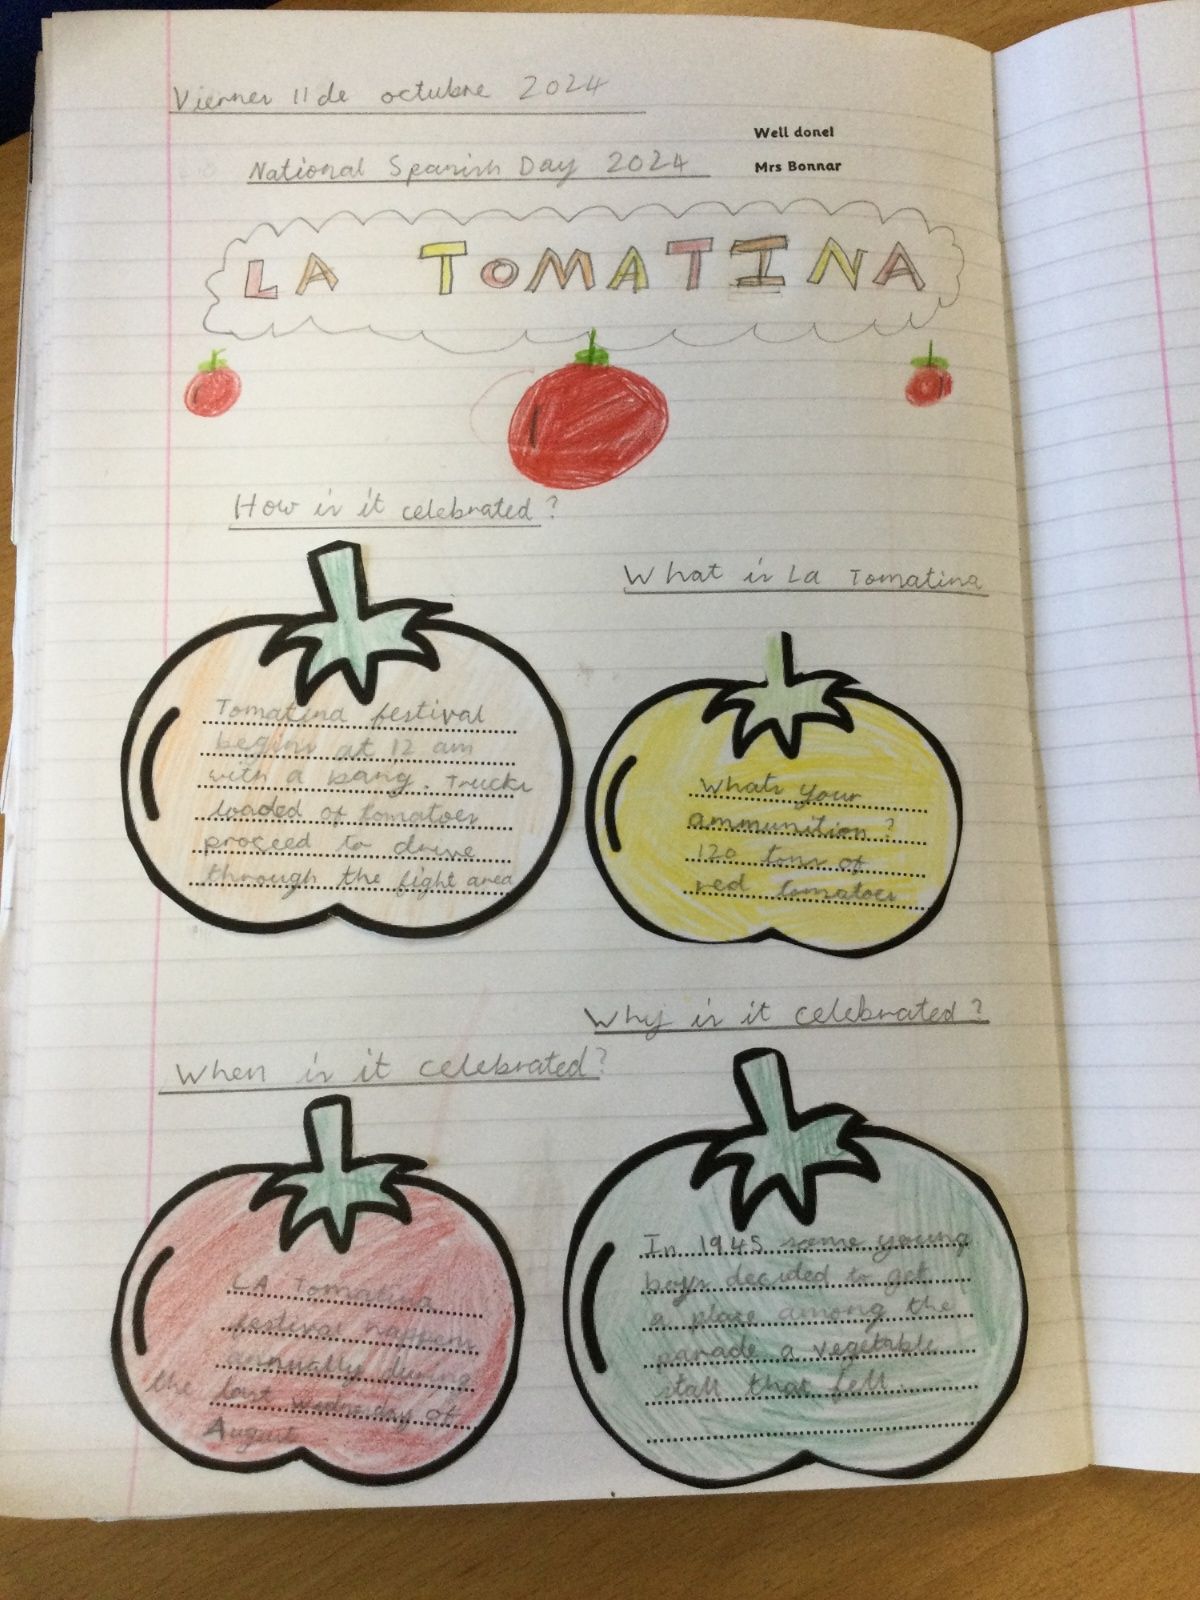 Viernes 11 de octubre 2024
Well done!
National Spanish Day 2024
Mrs Bonnar
LA TOMATINA
How is it celebrated?
What is La Tomatina
Tomatina festival
begins at 12 am
with a bang. Trucks
loaded of tomatoes
proceed to drive
through the fight area
Whats your
ammunition?
120 tons of
red tomatoes
Why is it celebrated?
When is it celebrated?
LA Tomatina
festival happens
annually during
the last Wednesday of
August
In 1945 some young
boys decided to get
a place among the
parade a vegetable
stall that fell.